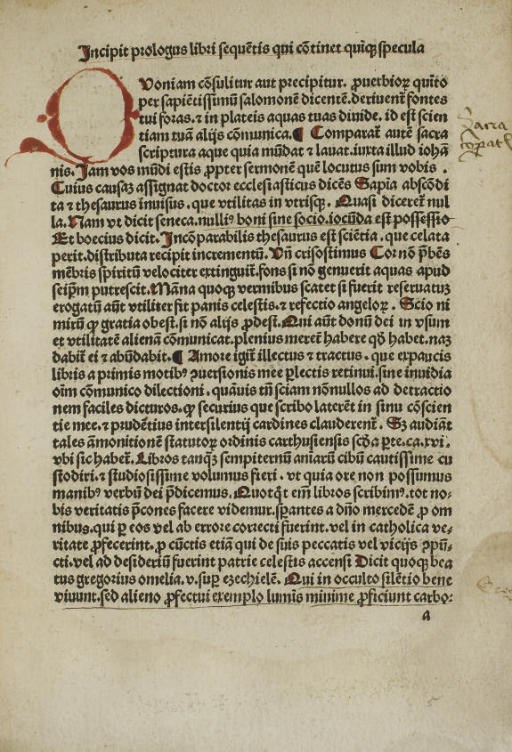 Incipit prologus libri sequētis qui cōtinet quīqȝ specula
Quoniam cōsulitur aut precipitur. ꝓuerbioꝝ quīto
per sapiētissimū salomonē dicentē. deriuent̄ fontes
tui foras. ⁊ in plateis aquas tuas diuide. id est scien
tiam tuā alijs cōmunica. ¶ Comparat̄ autē sacra
scriptura aque quia mūdat ⁊ lauat. iuxta illud iohā
nis. Jam vos mūdi estis ꝓpter sermonē quē locutus sum vobis .
Cuius causaȝ assignat doctor ecclesiasticus dicēs Sapīa abscōdi
ta ⁊ thesaurus inuisus. que vtilitas in vtrisqȝ. Quasi diceret̄ nul
la. Nam vt dicit seneca. nulliꝰ boni sine socio. iocūda est possessio
Et boecius dicit. Incōparabilis thesaurus est sciētia. que celata
perit. distributa recipit incrementū. Vn̄ crisostimus Cor nō p̄bēs
mēbris spiritū velociter extinguit̄. fons si nō genuerit aquas apud
seip̄m putrescit. Māna quoqȝ vermibus scatet si fuerit reseruatuȝ
erogatū aūt vtiliter fit panis celestis. ⁊ refectio angeloꝝ. Scio ni
mirū ꝙ gratia obest. si nō alijs ꝓdest. Qui aūt donū dei in vsum
et vtilitatē alienā cōmunicat. plenius meret̄ habere qd̄ habet. naȝ
dabit̄ ei ⁊ abūdabit. ¶ Amore igit̄ illectus ⁊ tractus . que expaucis
libris a primis motibꝰ ꝯuersionis mee ꝑlectis retinui. sine inuidia
oīm cōmunico dilectioni . quāuis tn̄ sciam nōnullos ad detractio
nem faciles dicturos. ꝙ securius que scribo laterēt in sinu cōscien
tie mee. ⁊ prudētius intersilentij cardines clauderent̄. Sȝ audiāt
tales āmonitionē statutoꝝ ordinis carthusiensis scd̄a ꝑte. ca. xvi .
vbi sic habet̄. Libros tanqȝ sempiternū aniarū cibū cautissime cu
stodiri. ⁊ studiosissime volumus fieri. vt quia ore non possumus
manibꝰ verbū dei p̄dicemus. Quotqt̄ em̄ libros scribimꝰ. tot no-
bis veritatis p̄cones facere videmur. sperantes a dn̄o mercedē ꝓ om
nibus. qui ꝑ eos vel ab errore correcti fuerint. vel in catholica ve-
ritate ꝓfecerint. ꝓ cūctis etiā qui de suis peccatis vel vicijs ꝯpūc-
cti. vel ad desideriū fuerint patrie celestis accensi Dicit quoqȝ bea
tus gregorius omelia. v. sup̄ ezechielē. Qui in occulto silētio bene
viuunt. sed alieno ꝓfectui exemplo lumīs minime ꝓficiunt carbo-
a
Sacra